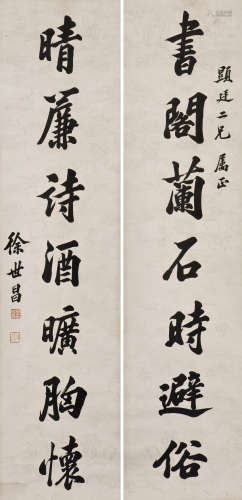 顯廷二兄屬正
書閣蘭石時避俗
晴簾詩酒曠胸懷
徐世昌